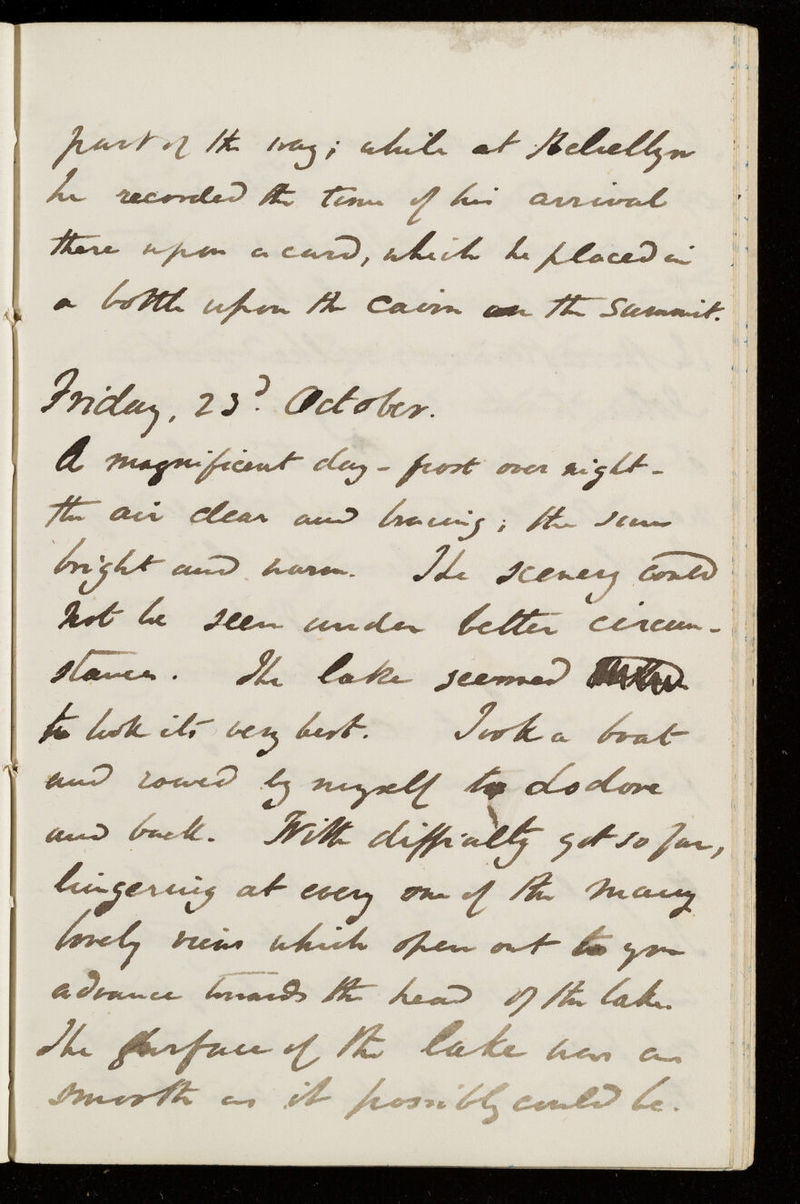 part of the way; while at Helvellyn
he recorded the time of his arrival
there upon a card, which he placed in
a bottle upon the cairn on the summit.
Friday, 23d. October.
A magnificent day - frost over night -
the air clear and bracing; the sun
bright and warm. The scenery could
not be seen under better circum-
stances. The lake seemed
to look its very best. Took a boat
and rowed by myself to Lodore
and back. With difficulty got so far,
lingering at every one of the many
lovely views which open out as you
advance towards the head of the lake.
The surface of the lake was as
smooth as it possibly could be.